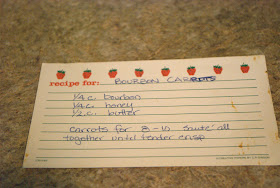 recipe for: BOURBON CARROTS
1/4 c. bourbon
1/4 c. honey
1/2 c. butter
carrots for 8-10 saute' all
together until tender crisp